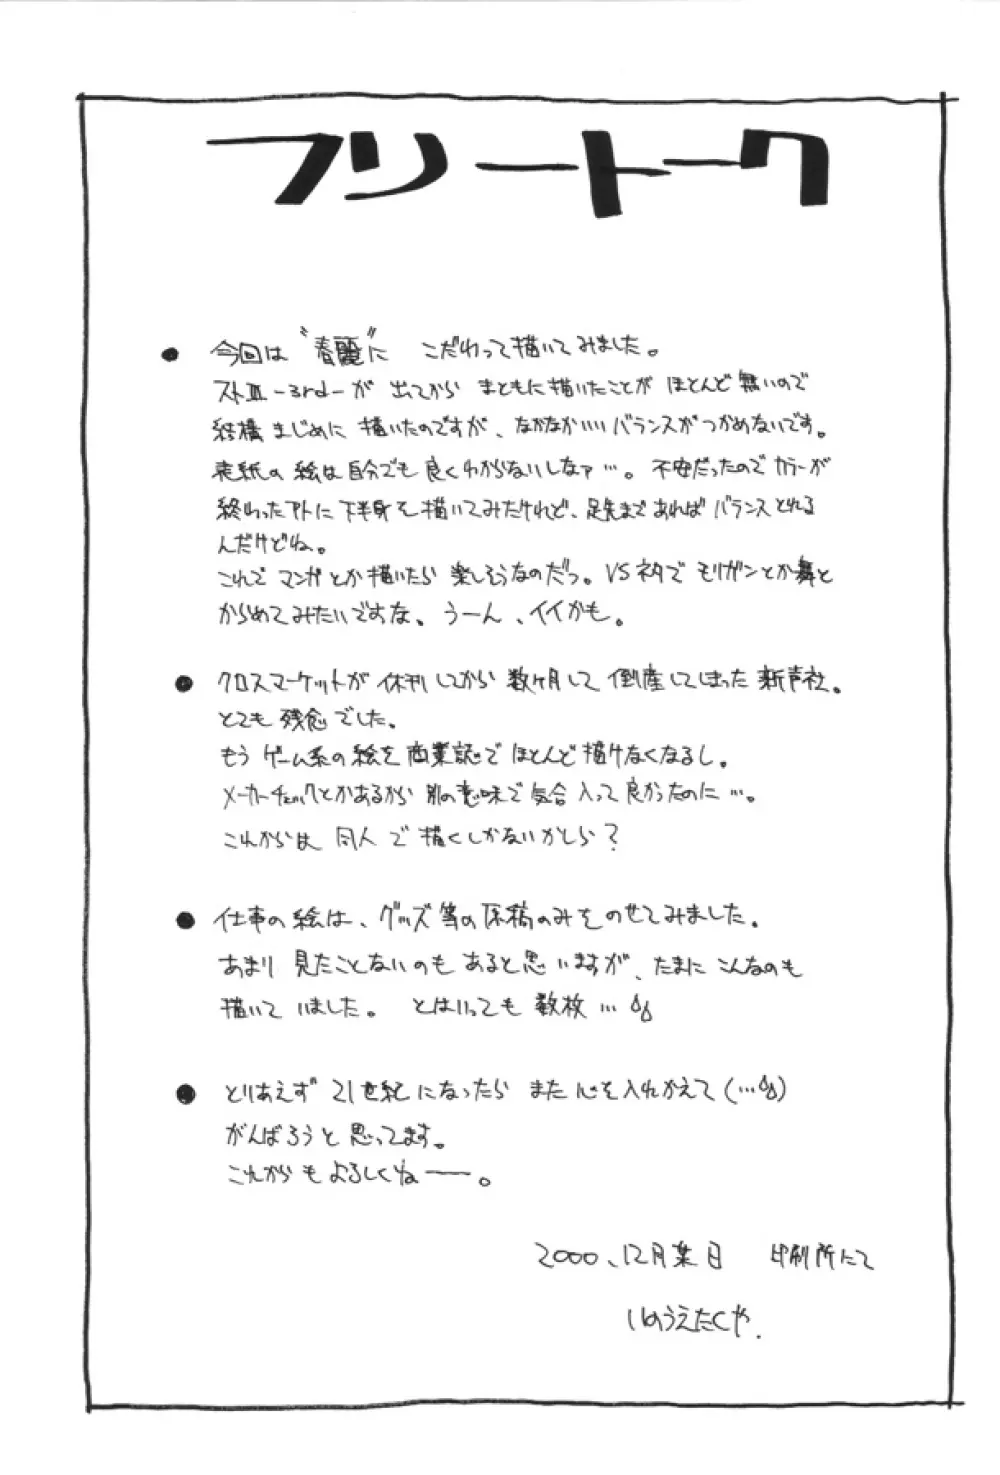 フリートーク
● 今回は〝春麗〟に こだわって描いてみました。
ストⅢ-3rd-が 出てから まともに描いたことが ほとんど無いので
結構まじめに 描いたのですが、なかなかいいバランスがつかめないです。
表紙の絵は自分でも良くわからないしなァ…。不安だったのでカラーが
終わった下に下半身を描いてみたけれど、足先まであればバランスとれる
んだけどね。
これでマンガとか描いたら楽しそうなのだっ。VSネタでモリガンとか舞と
からめてみたいですな。うーん、イイかも。
● クロスマーケットが休刊してから数ヶ月して倒産してしまった新声社。
とても残念でした。
もうゲーム系の絵を商業誌でほとんど描けなくなるし。
メーカーチェックとかあるから別の意味で気合入って良かったのに…。
これからは同人で描くしかないかしら?
● 仕事の絵は、グッズ等の原稿のみをのせてみました。
あまり見たことないのもあると思いますが、たまにこんなのも
描いていました。 とはいっても数枚…
● とりあえず21世紀になったらまた心を入れかえて(…)
がんばろうと思ってます。
これからもよろしくねー。
2000、12月某日 印刷所にて
いのうえたくや.